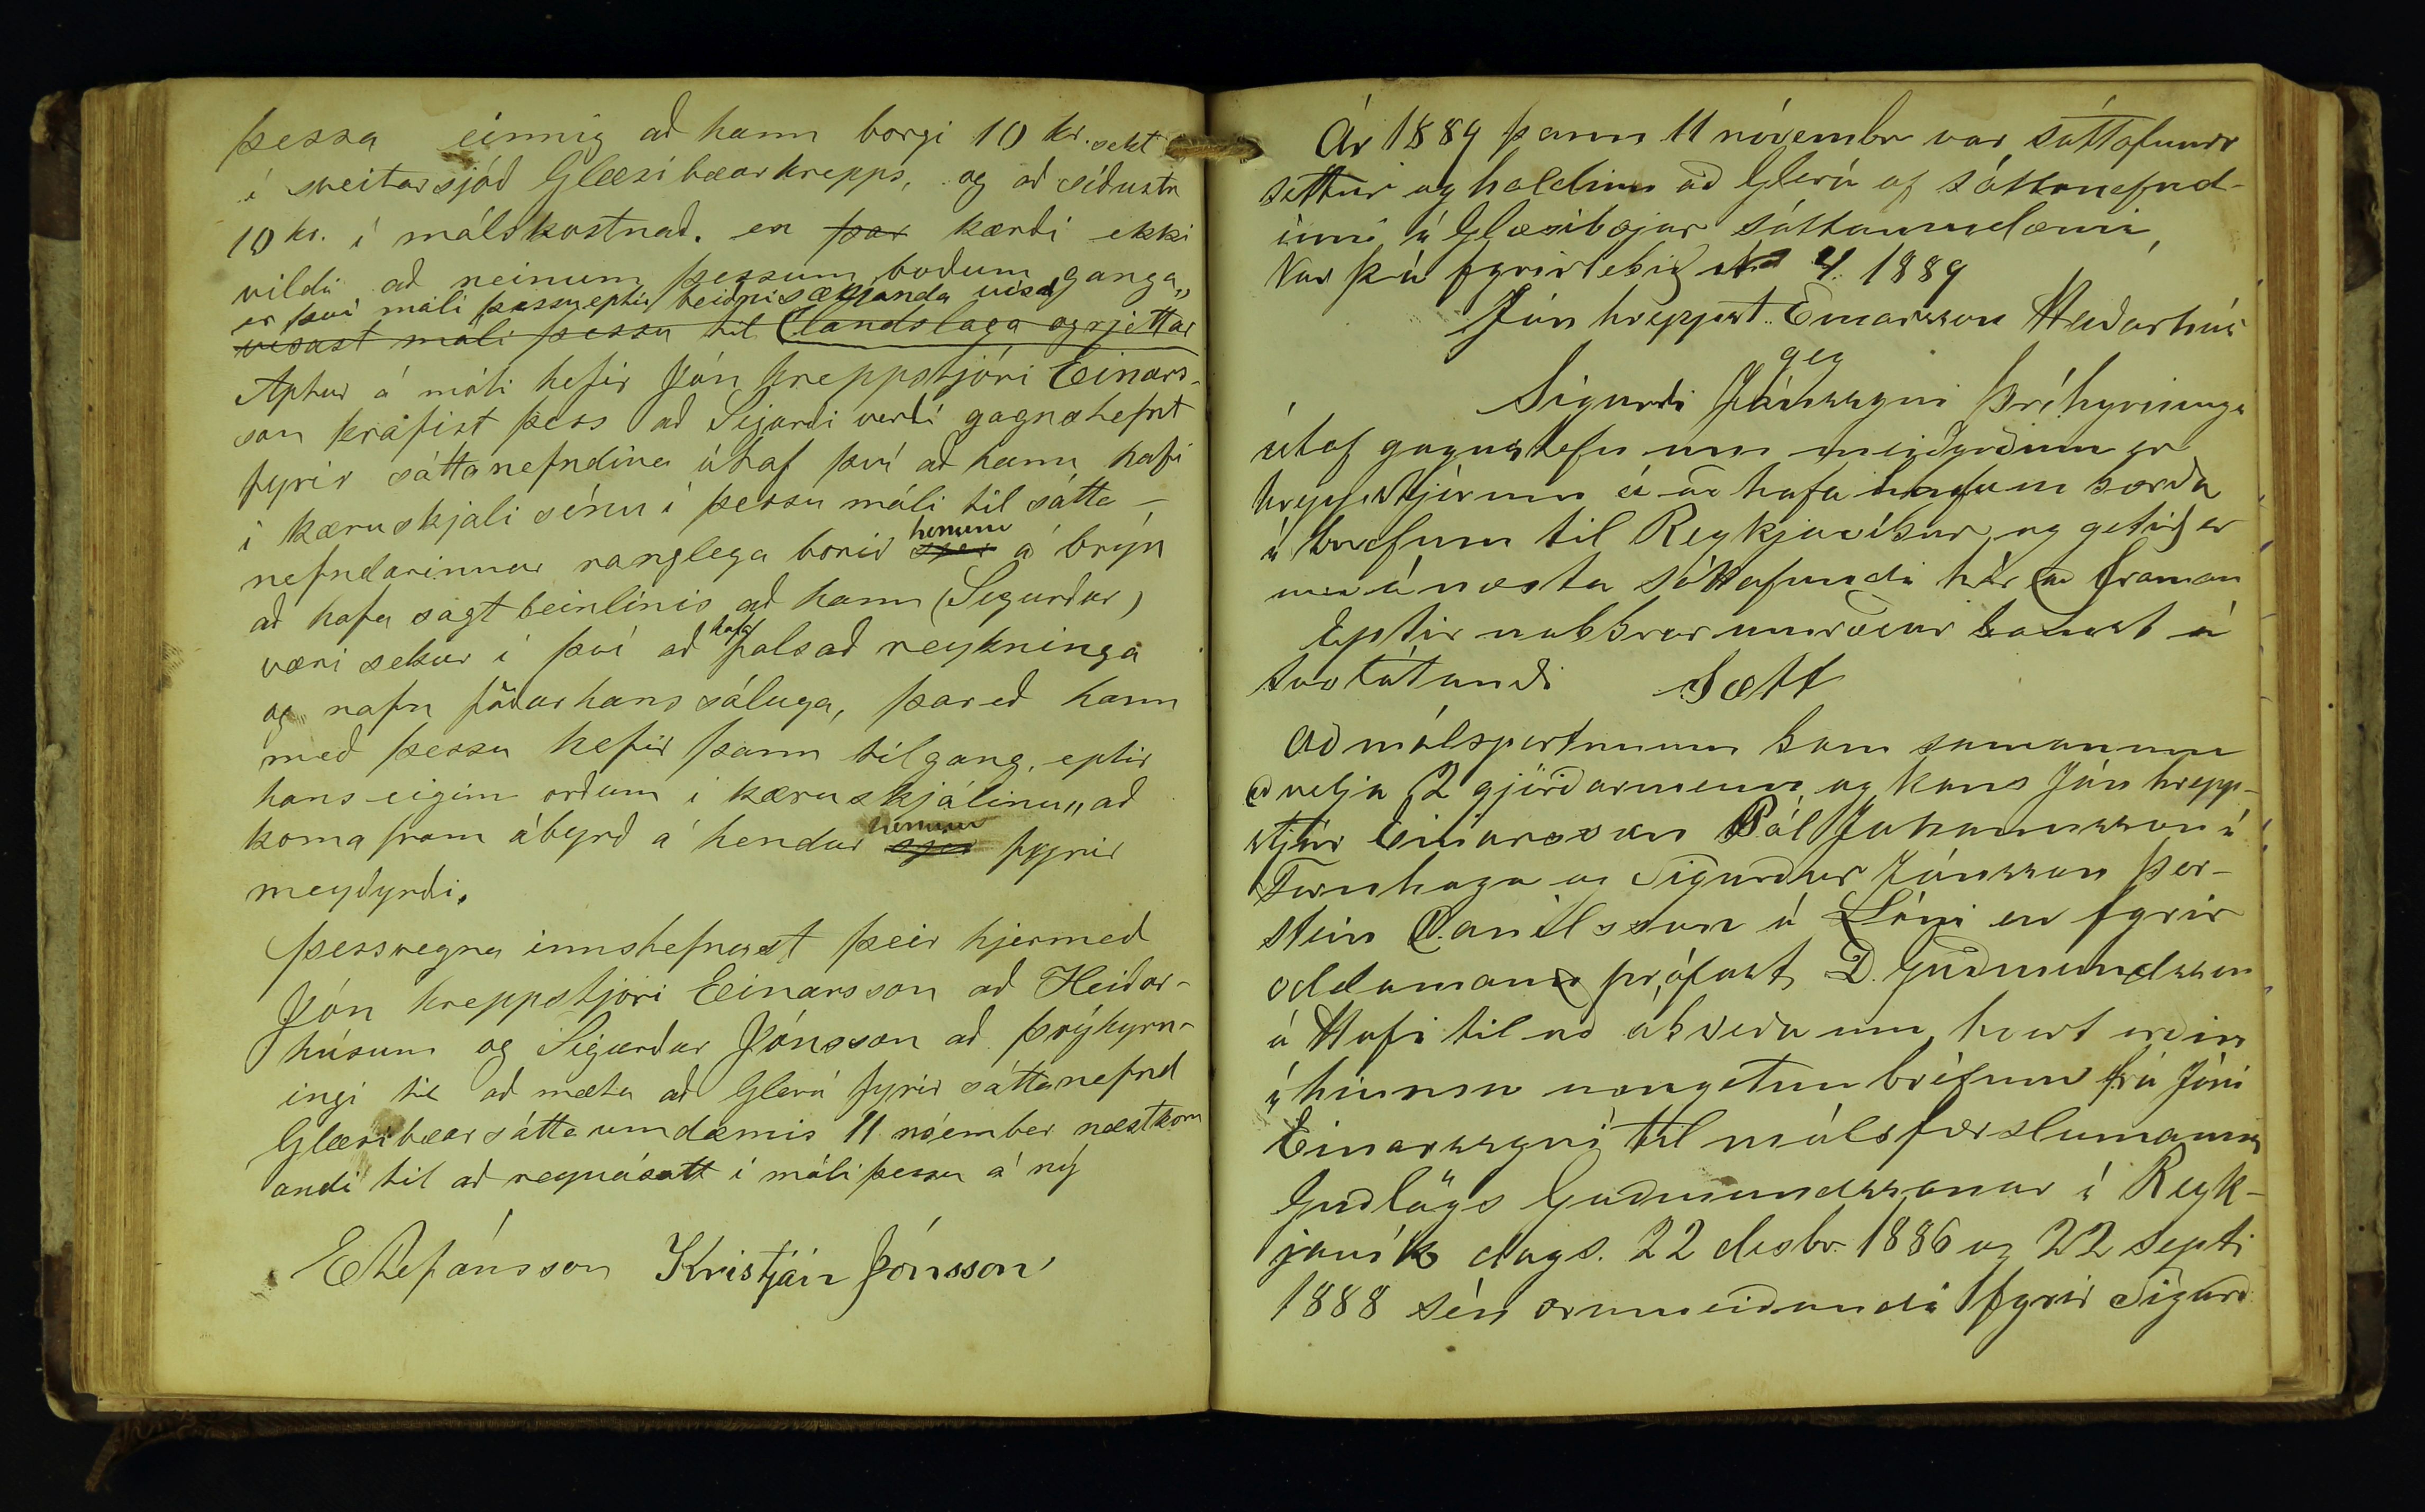 þessa einnig að hann borgi 10 kr. sekt
í sveitarsjóð Glæsibæarhrepps, og að síðustu
10 kr. í málskostnað. en þar kærði ekki
vildi að neinum þessum boðum ganga„
er því máli þessu eptir beiðni sækjanda vísað
vísast máli þessu til landslaga og rjettar
Aptur á móti hefir Jón hreppstjóri Einars-
son krafist þess að Sigurði verði gagnstefnt
fyrir sáttanefndina útaf því að hann hafi
í kæruskjali sínu í þessu máli til sátta-
nefndarinnar ranglega borið honum á brýn
að hafa sagt beinlínis að hann (Sigurður)
væri sekur í því að hafa falsað reykninga
og nafn föður hans sáluga, þareð hann
með þessu hefir þann tilgang, eptir
hans eigin orðum í kæruskjalinu„ að
koma fram ábyrð á hendur honum fyrir
meyðyrði.
Þessvegna innstefnast þeir hjermeð
Jón hreppstjóri Einarsson að Heiðar-
húsum og Sigurður Jónsson að Þrýhyrn-
ingi til að mæta að Glerá fyrir sáttanefnd
Glæsibæar sáttaumdæmis 11 nóember næstkom
andi til að reyna sátt í máli þessu á ný
EStefánsson Kristján Jónsson
Ár 1889 þann 11 nóvembr var sáttafundr
settur og haldinn að Glerá af sáttanefnd-
inni í Glæsibæjar sáttaumdæmi,
Var þá fyrirtekið 4. 1889
Jón hreppst. Einarsson Heiðarhús
geg
Sigurði Jónssyni Þríhyrninge
útaf gagnstefnu um meiðyrðum er
hreppstjórinn á að hafa um
í brefum til Reykjavíkur og getið er
um á næsta sáttafundi hér að framan
Eptir nokkrar umræður komst á
svolátandi Sætt
Að málspartunum kom samanum
að velja 2 gjörðarmenn og kaus Jón hrepp-
stjóri Einarsson Pál Johannsson í
Fornhaga og Sigurður Jónsson Þor-
stein Daníelsson á Lóni en fyrir
oddamann prófast D. Guðmundsson
á Hofi til að ákveða um hvert orðin
í hinum bréfum frá Jóni
Einarssyni til málsfærslumanns
Guðlögs Guðmundssonar í Reyk-
javík dags. 22 desbr. 1886 og 22 septi
1888 séu ærumeiðandi fyrir Sigurð